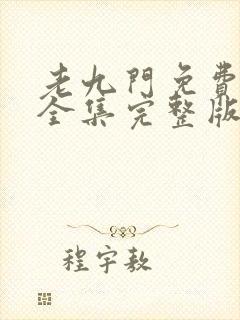 老九門免費
全集完整版
程宇敖